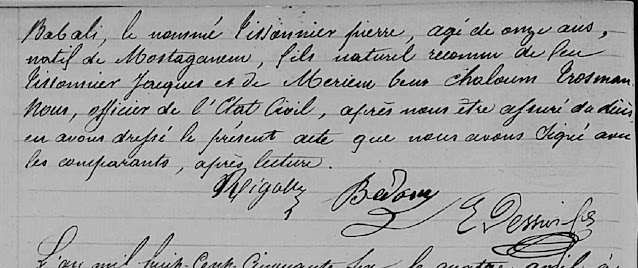 Babali, le nommé Tissonnier pierre, agé de onze ans,
natif de Mostaganem, fils naturel reconnu de feu
Tissonnier Jacques et de Meriem bent Chaloum Trosman.
Nous, officier de l'Etat Civil, après nous être assuré du décès
en avons dressé le present acte que nous avons signé avec
les comparants, après lecture.
Bedour E Dessin
L'an mil huit cent cinquante six le quatre avril à